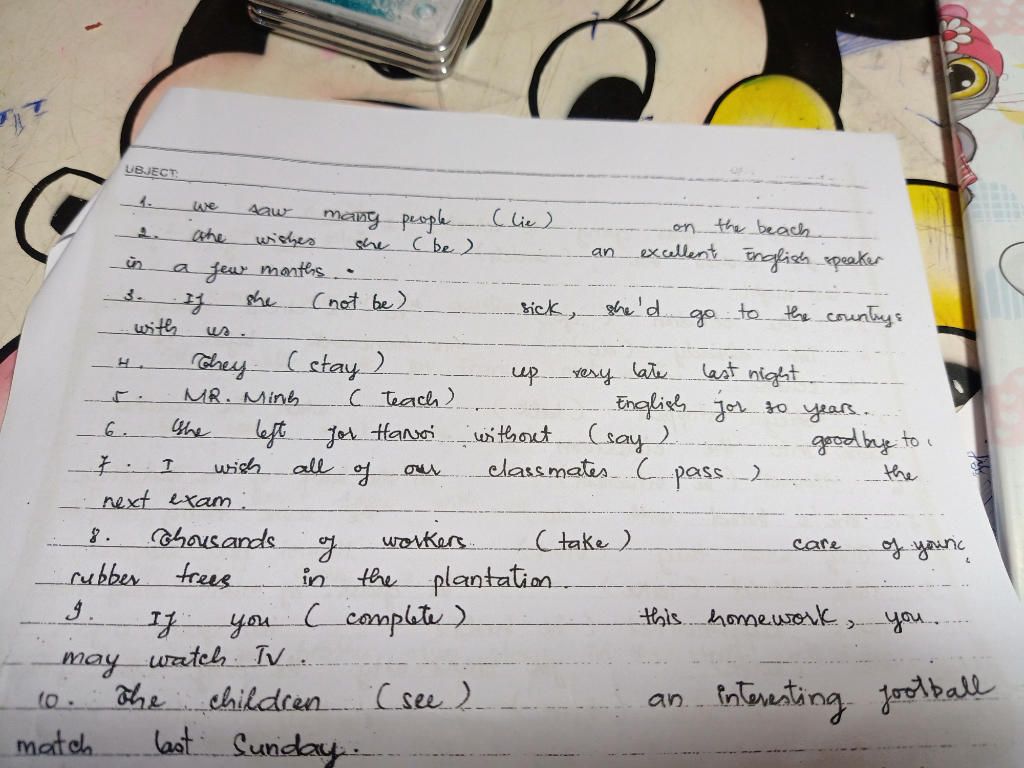 UBJECT:
1. We saw many people (lie) on the beach
2. She wishes she (be) an excellent English speaker
in a few months.
3. If she (not be) sick, she'd go to the countrys
with us.
4. They (stay) up very late last night
5. MR. Minh (teach) English for 20 years.
6. She left for Hanoi without (say) goodbye to
7. I wish all of our classmates (pass) the
next exam.
8. Thousands of workers (take) care of young
rubber trees in the plantation.
9. If you (complete) this homework, you
may watch TV.
10. The children (see) an interesting football
match last Sunday.